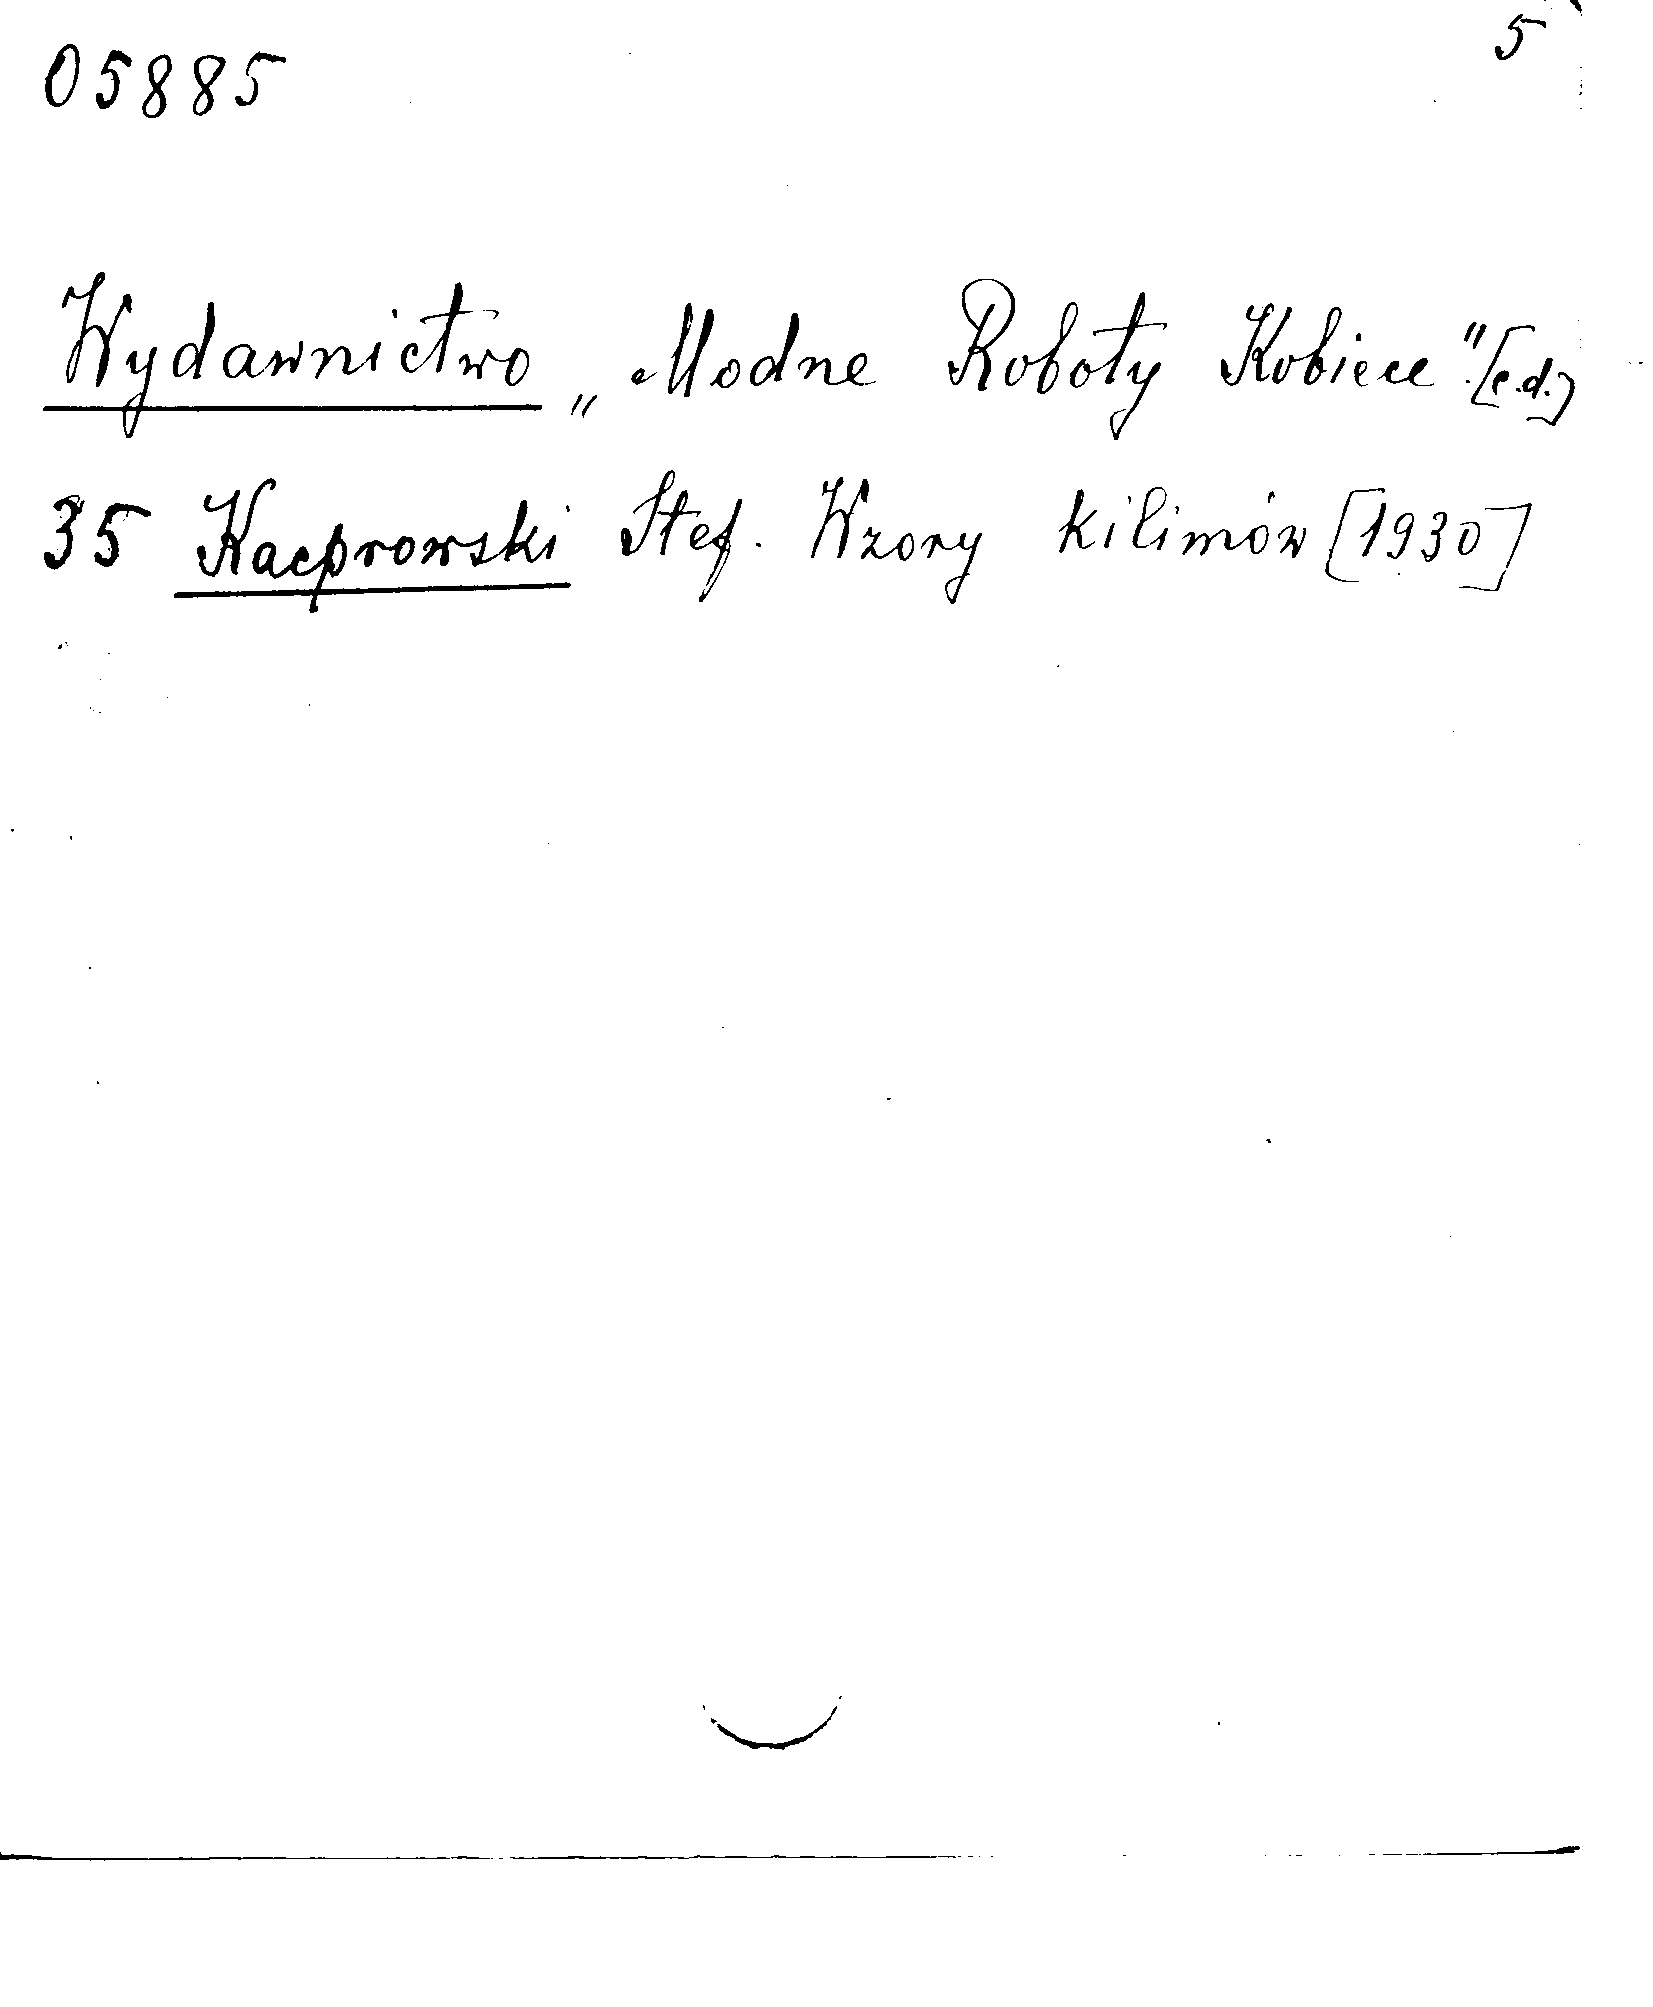 5
05885
Wydawnictwo „Modne Roboty Kobiece". [c.d.]
35 Kacprowski Stef. Wzory kilimów [1930]